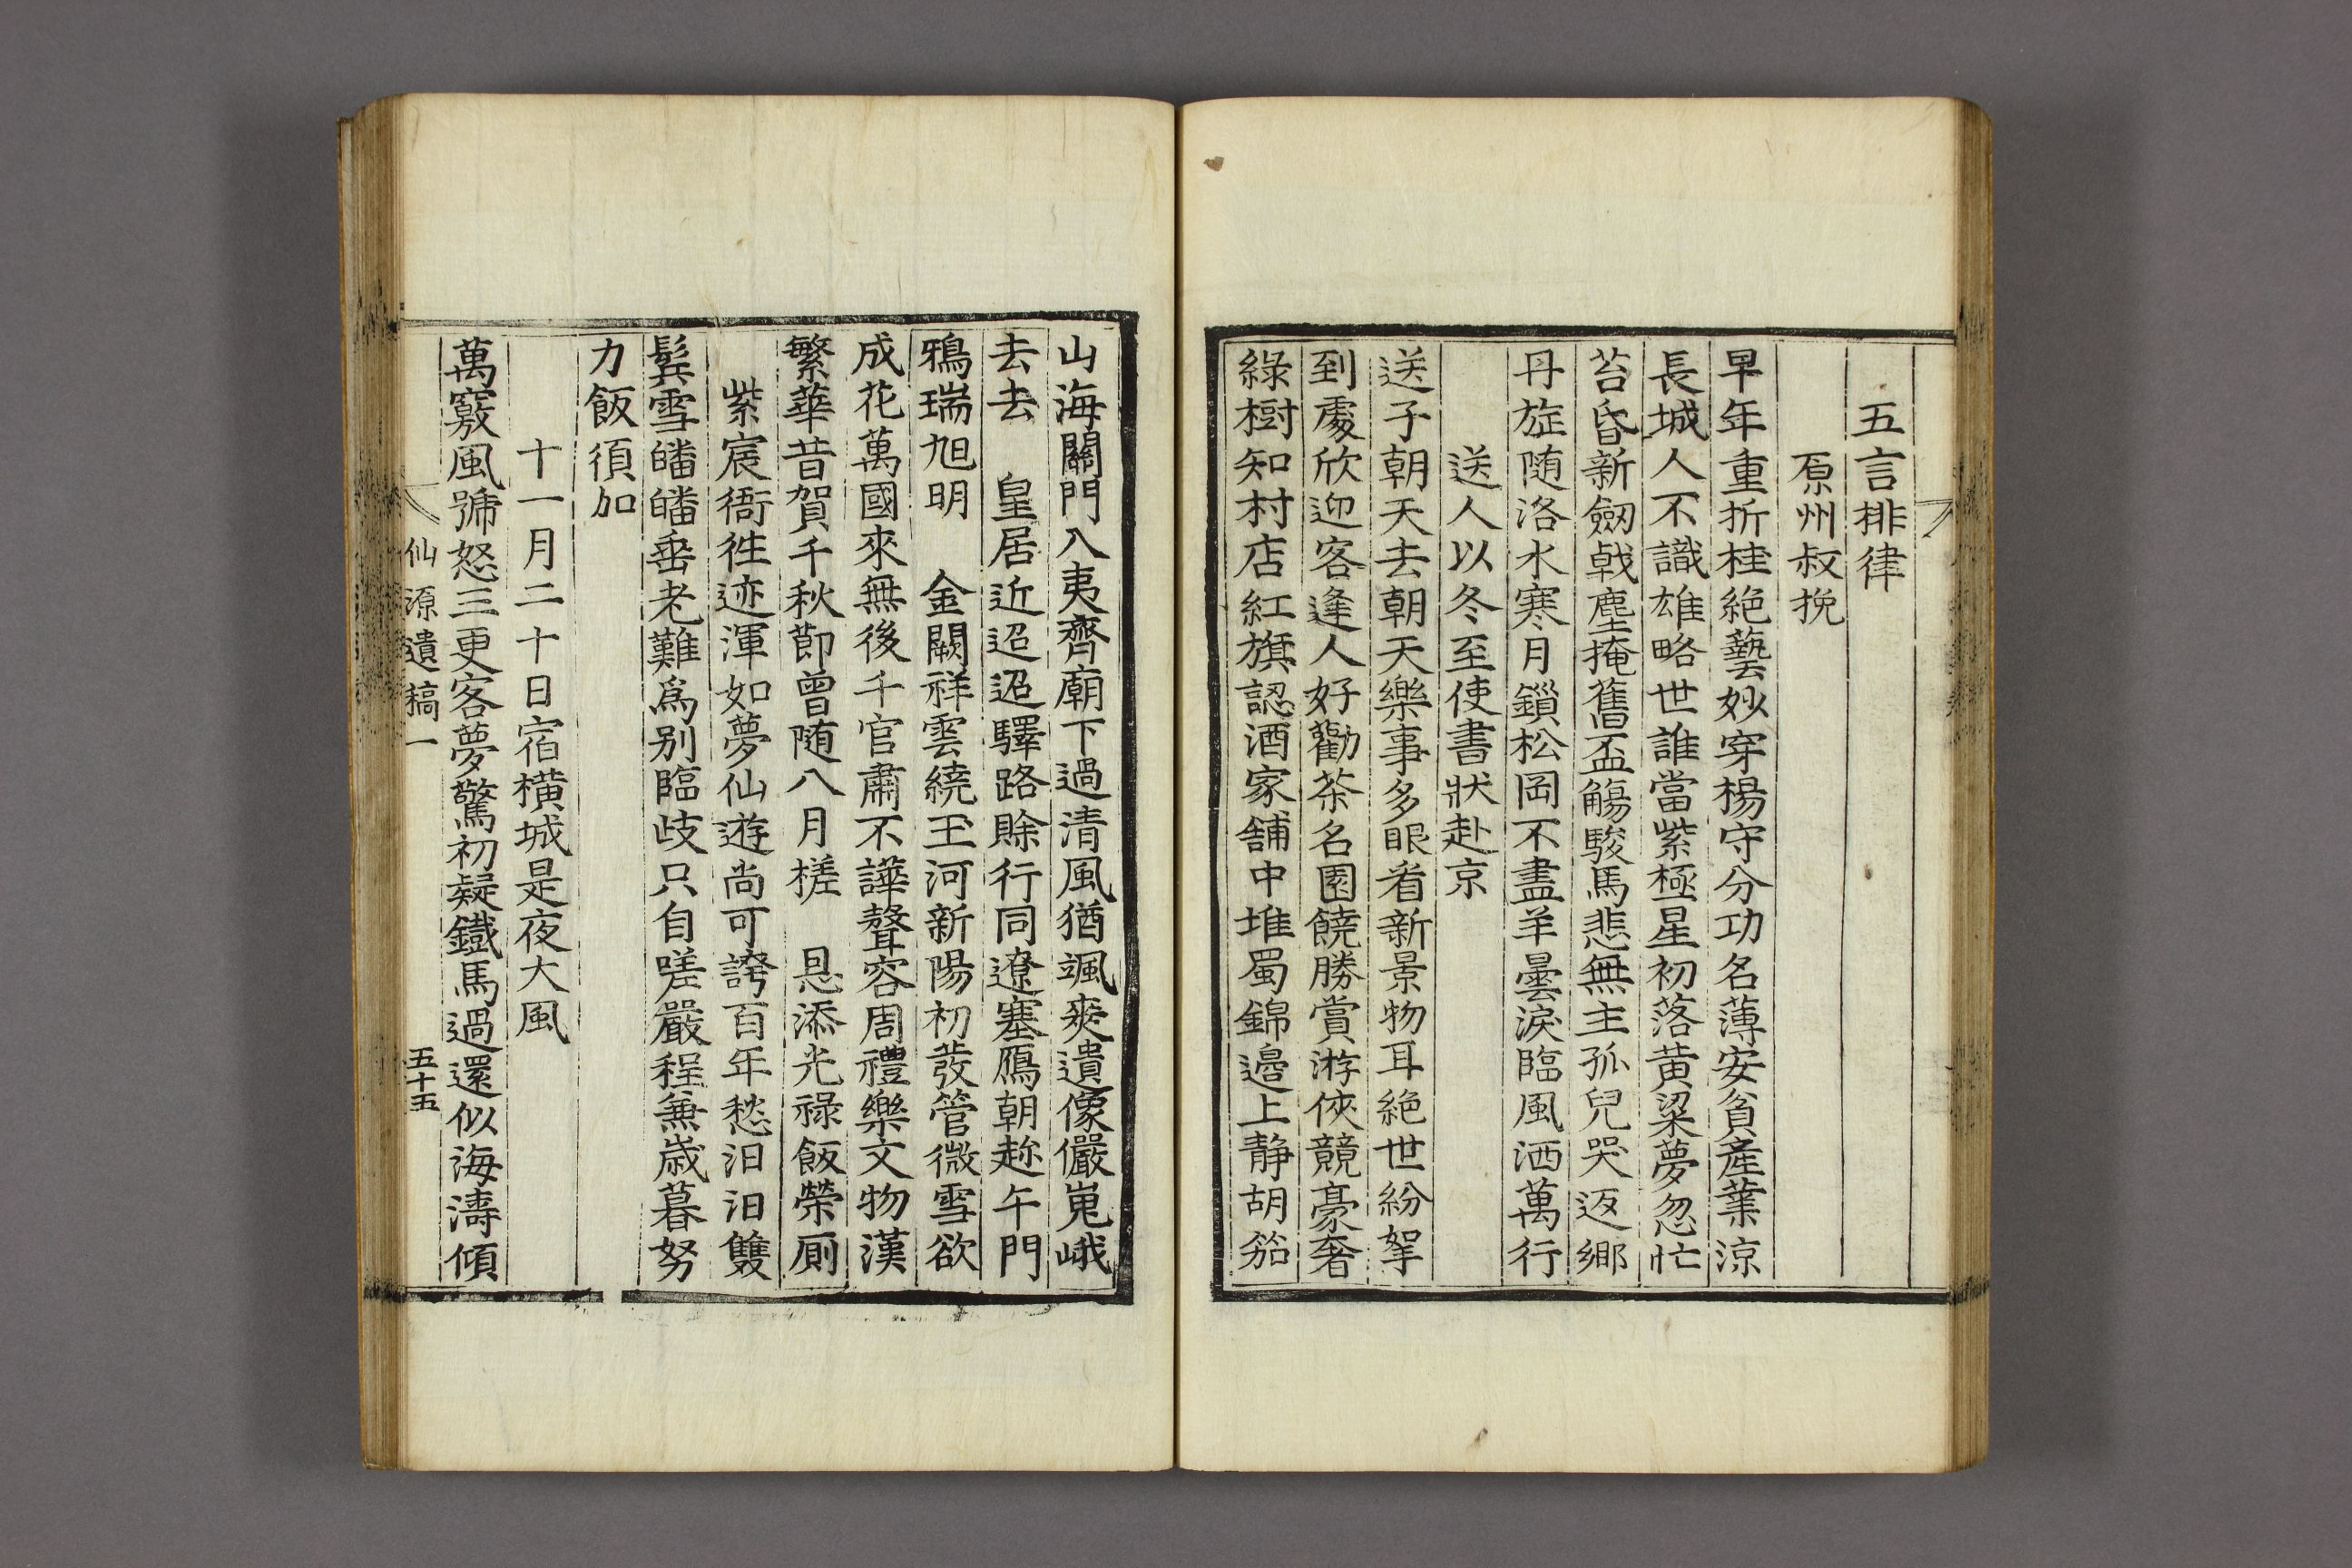 五言排律
原州叔挽
早年重折桂絶藝妙穿楊守分功名薄安貧産業涼
長城人不識雄略世誰當紫極星初落黄粱夢忽忙
苔昏新劒戟塵掩舊盃觴駿馬悲無主孤兒哭返鄉
丹旋随洛水寒月鎻松岡不盡羊曇淚臨風洒萬行
送人以冬至使書狀赴京
送子朝天去朝天樂事多眼看新景物耳絶世紛挐
到處欣迎客逢人好勸茶名園饒勝賞游俠競豪奢
綠樹知村店紅旗認酒家舖中堆蜀錦邉上静胡笳
山海關門入夷齊廟下過清風猶颯爽遺像儼嵬峨
去去 皇居近迢迢驛路賒行同遼塞鴈朝趂午門
鴉瑞旭明 金闕祥雲繞玉河新陽初發管微雪欲
成花萬國來無後千官肅不譁聲容周禮樂文物漢
繁華昔賀千秋節曾随八月槎 恩添光祿飯榮厠
紫宸衙徃迹渾如夢仙遊尚可誇百年愁汨汨雙
鬂雪皤皤垂老難爲别臨歧只自嗟嚴程兼歲暮努
力飯須加
十一月二十日宿横城是夜大風
萬竅風號怒三更客夢驚初疑鐵馬過還似海濤傾
仙源遺稿一 五十五